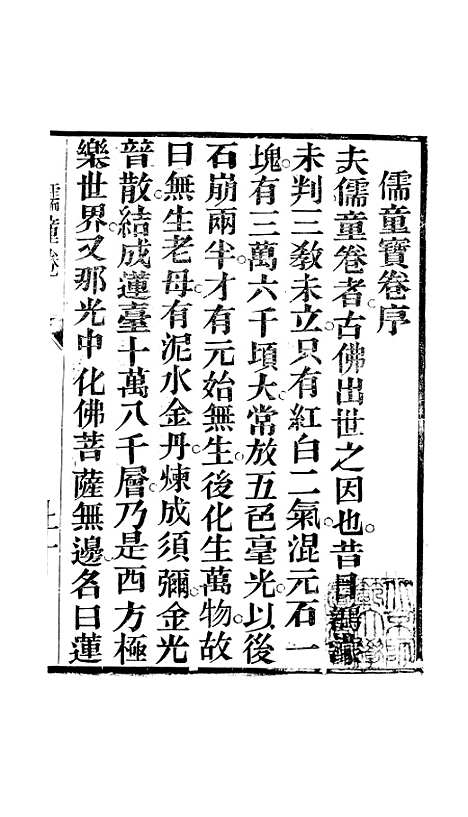 儒童寶卷序
夫儒童卷者。古佛出世之因也。昔日鴻濛
未判三敎未立。只有紅白二氣。混元石一
塊。有三萬六千頃大。常放五色毫光。以後
石崩兩半。才有元始無生。後化生萬物。故
曰無生老母。有泥水金丹。煉成須彌。金光
普散。結成蓮臺十萬八千層。乃是西方極
樂世界。又那光中化佛菩薩無邊。名曰蓮
儒童卷